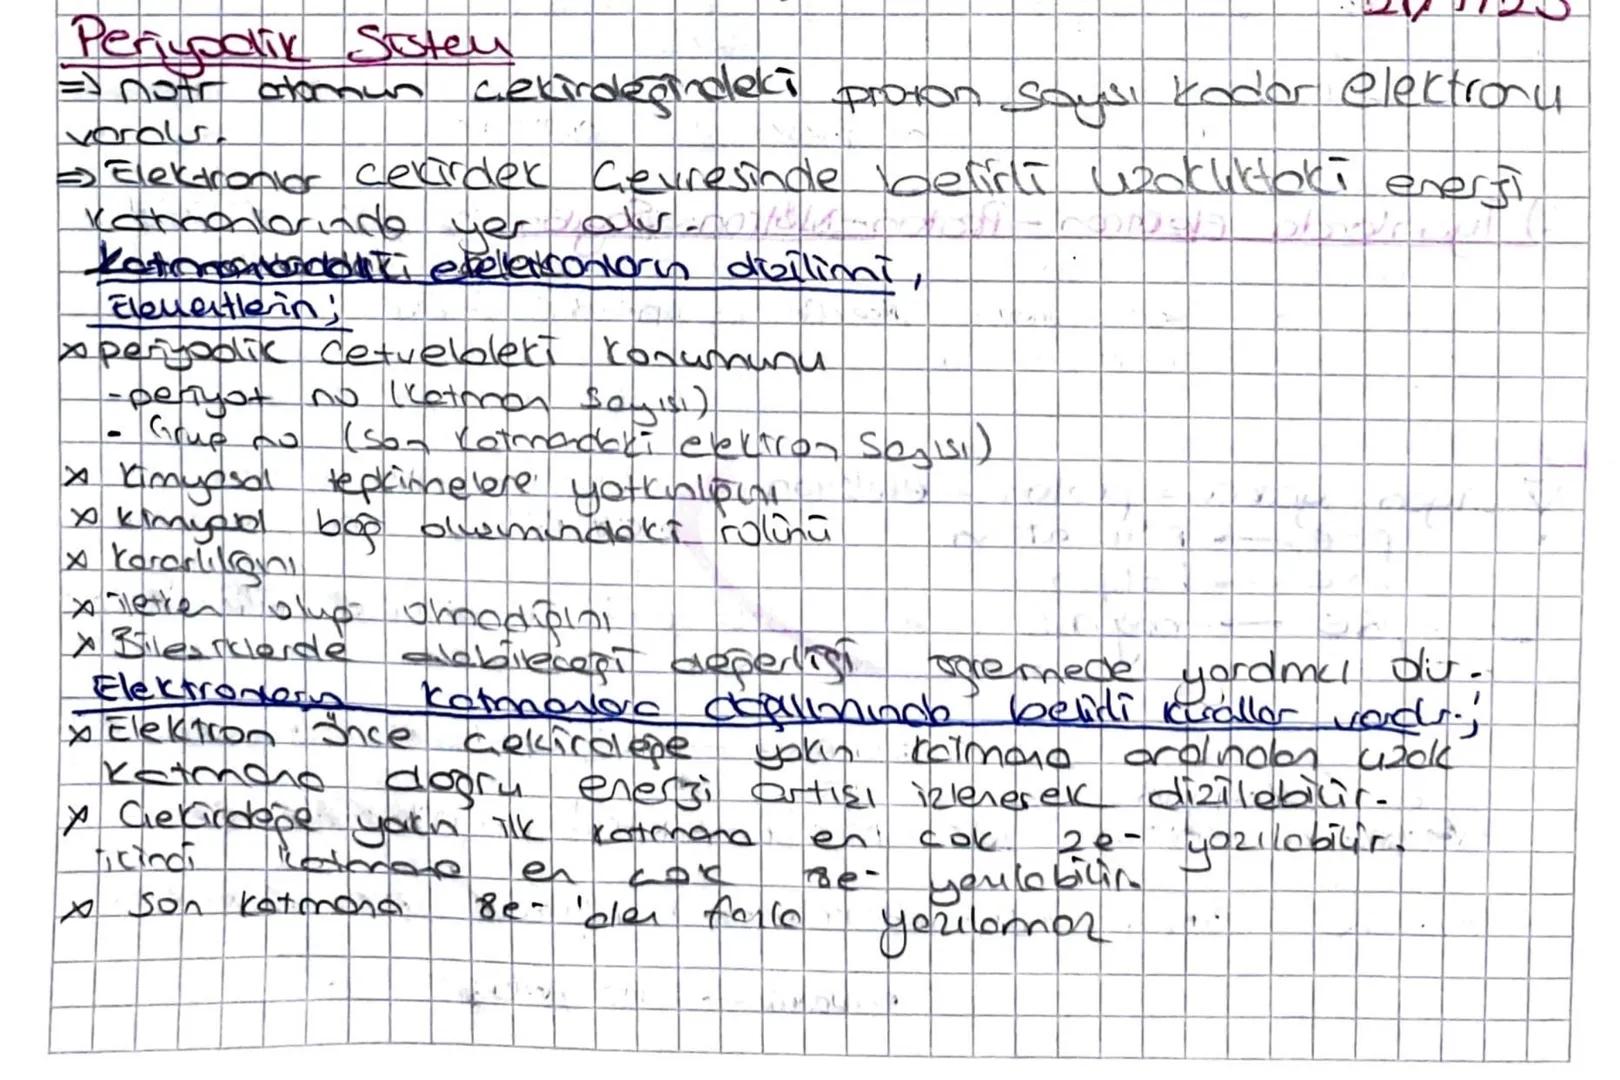 Periyodik Sistem
=> nötr atomun çekirdeğindeki proton sayısı kadar elektronu
vardır.
=> Elektronlar çekirdek çevresinde belirli uzaklıktaki enerji
katmanlarında yer alır.
Katmanlardaki elektronların dizilimi,
Elementlerin;
x periyodik cetveldeki konumunu
- periyot no (katman sayısı)
- Grup no (son katmandaki elektron sayısı)
x kimyasal tepkimelere yatkınlığını
x kimyasal bağ oluşumundaki rolünü
x kararlılığını
x iletken olup olmadığını
x Bileşiklerde alabileceği değerliği öğrenmede yardımcı olur.
Elektronların katmanlara dağılımında belirli kurallar vardır.;
x Elektron önce çekirdeğe yakın katmana ardından uzak
katmana doğru enerji artışı izlenerek dizilebilir.
x Çekirdeğe yakın ilk katmana en çok 2e- yazılabilir.
ikinci katmana en çok 8e- yazılabilir.
x son katmana 8e-'den fazla yazılamaz